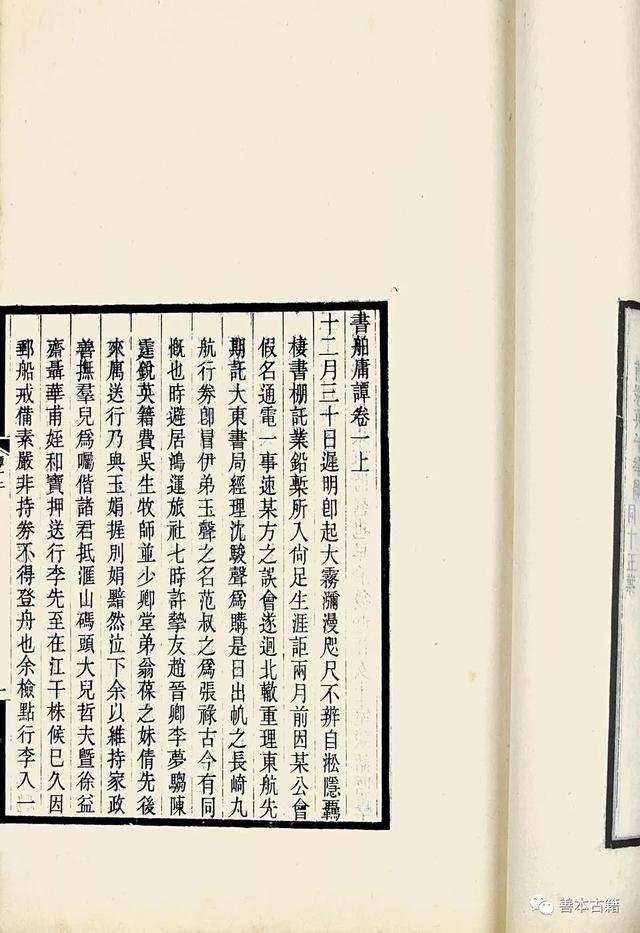 書舶庸譚卷一上
十二月三十日遲明卽起大霧瀰漫咫尺不辨自淞隱羈
棲書棚託業鉛槧所入尙足生涯詎兩月前因某公會
假名通電一事速某方之誤會遂迴北轍重理東航先
期託大東書局經理沈駿聲爲購是日出帆之長崎丸
航行券卽冒伊弟玉聲之名范叔之爲張祿古今有同
慨也時避居鴻運旅社七時許摯友趙晉卿李夢騶陳
霆銳英籍費吳生牧師並少卿堂弟翁葆之妹倩先後
來厲送行乃與玉娟握別娟黯然泣下余以維持家政
善撫羣兒爲囑偕諸君抵滙山碼頭大兒哲夫曁徐益
齋聶華甫姪和寶押送行李先至在江干株候已久因
郵船戒備素嚴非持券不得登舟也余檢點行李入一
善本古籍